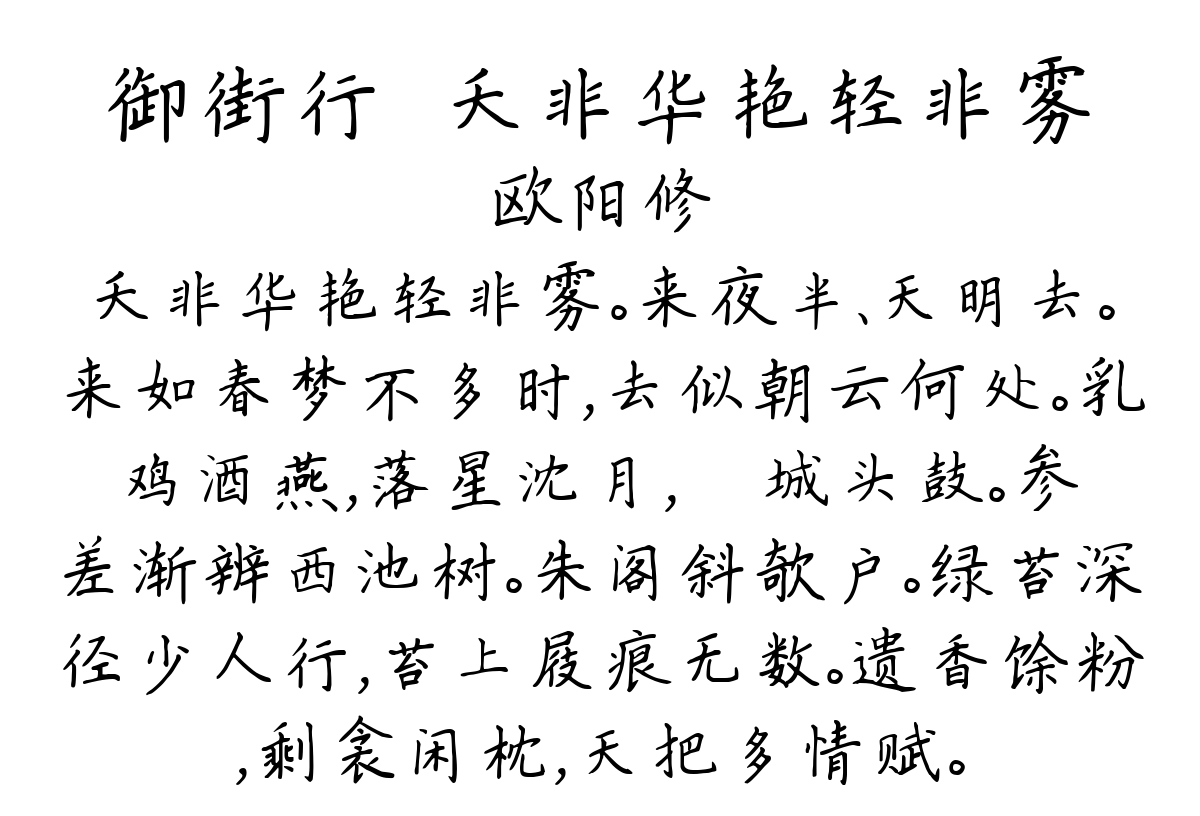 御街行 夭非华艳轻非雾
欧阳修
夭非华艳轻非雾。来夜半、天明去。
来如春梦不多时,去似朝云何处。乳
鸡酒燕,落星沈月, 城头鼓。参
差渐辨西池树。朱阁斜欹户。绿苔深
径少人行,苔上屐痕无数。遗香馀粉
,剩衾闲枕,天把多情赋。